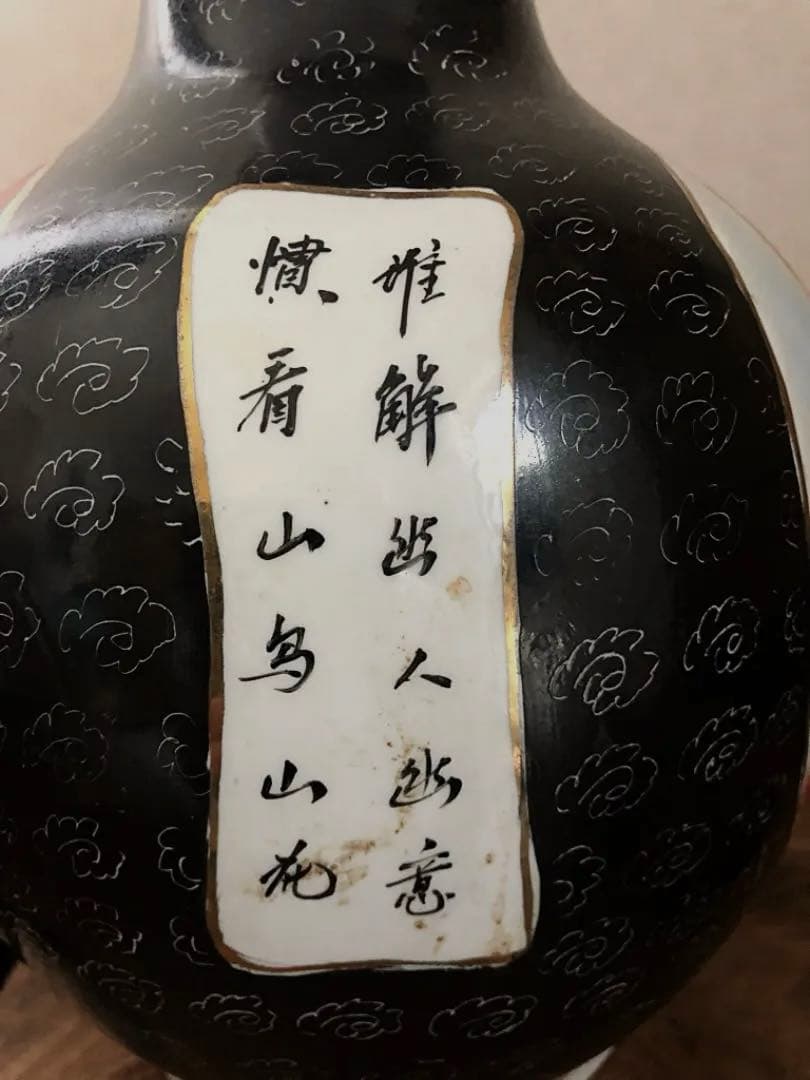 谁解幽人幽意
慣看山鸟山花